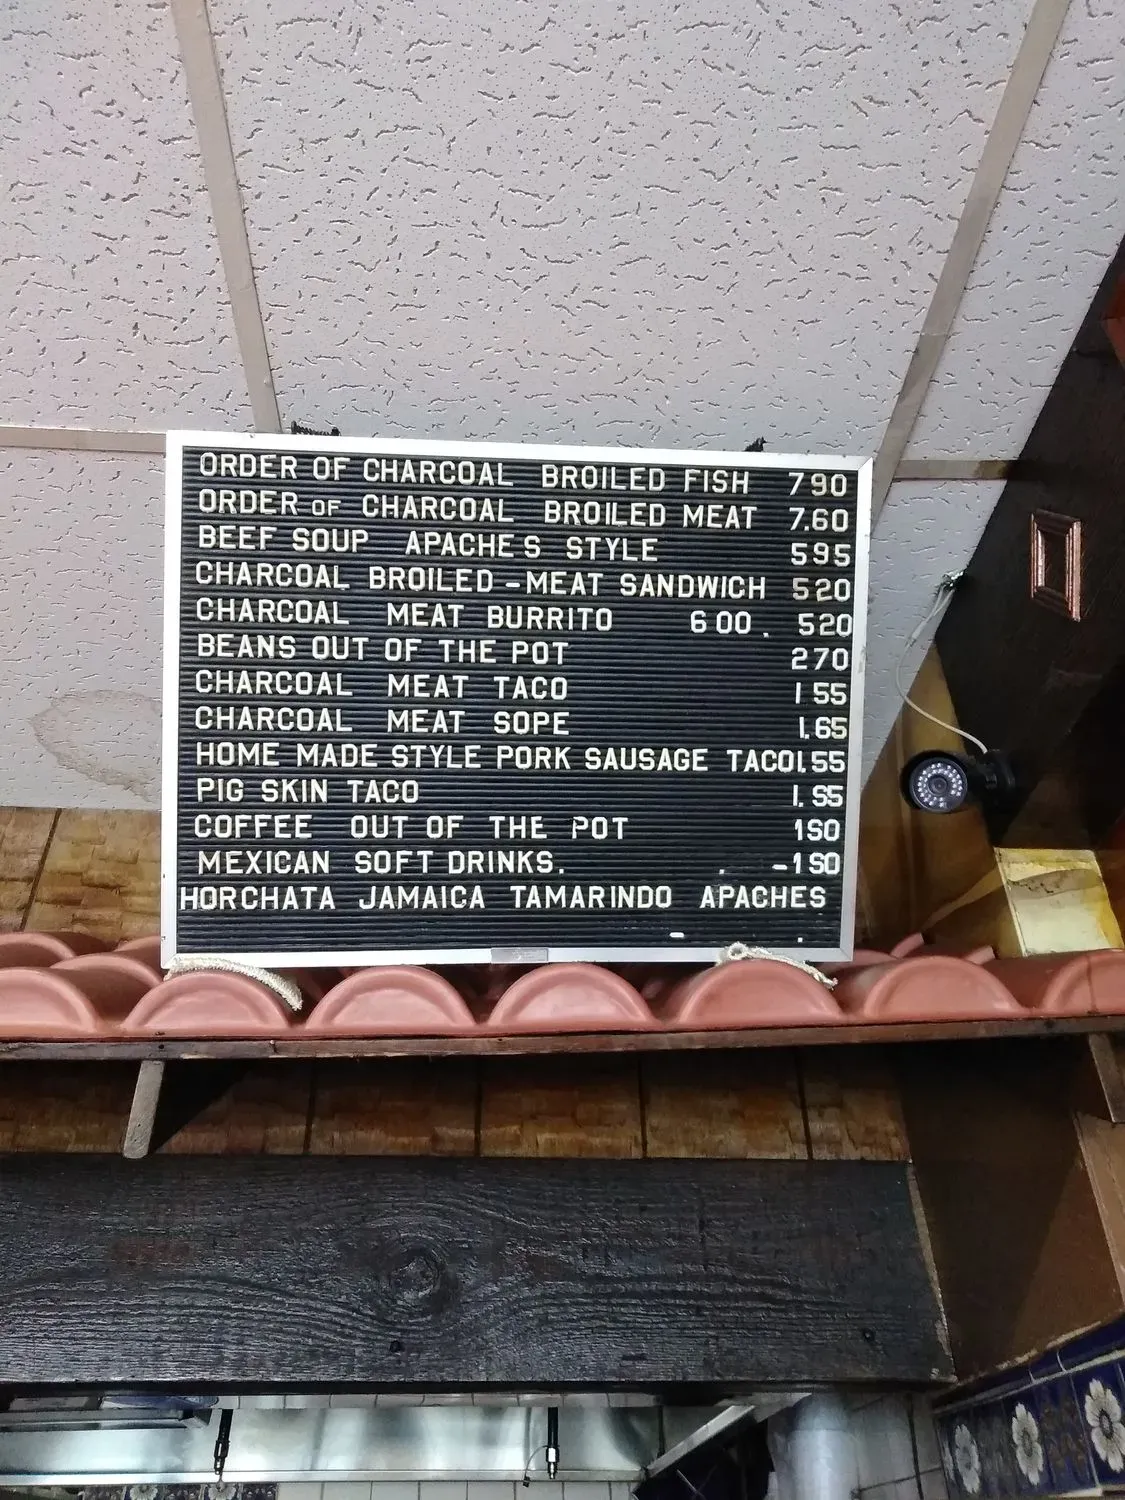 ORDER OF CHARCOAL BROILED FISH 790
ORDER OF CHARCOAL BROILED MEAT 7.60
BEEF SOUP APACHES STYLE 595
CHARCOAL BROILED -MEAT SANDWICH 520
CHARCOAL MEAT BURRITO 600. 520
BEANS OUT OF THE POT 270
CHARCOAL MEAT TACO 155
CHARCOAL MEAT SOPE 1.65
HOME MADE STYLE PORK SAUSAGE TACO1.55
PIG SKIN TACO 1.S5
COFFEE OUT OF THE POT 1S0
MEXICAN SOFT DRINKS. . -1S0
HORCHATA JAMAICA TAMARINDO APACHES
- .